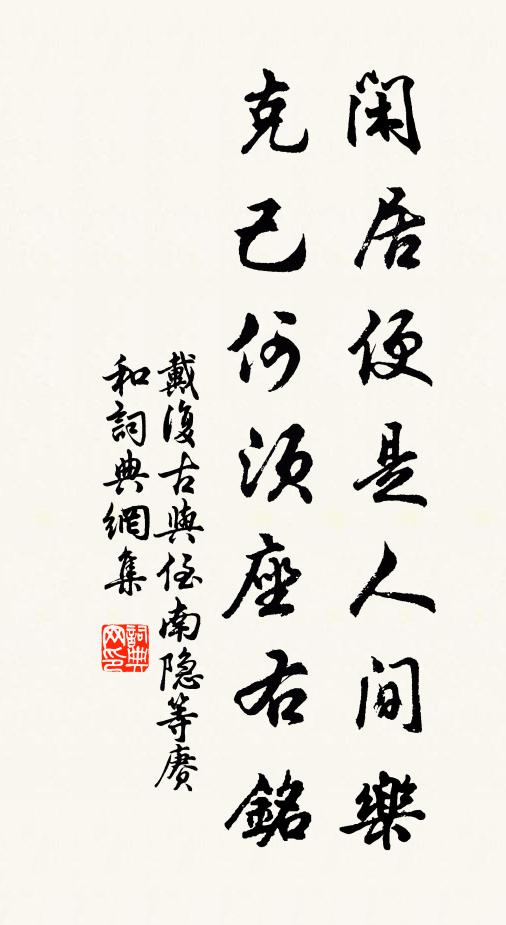 閑居便是人間樂
克己何須座右銘
戴復古與侄南隐等賡
和詞典網集
詞典網印